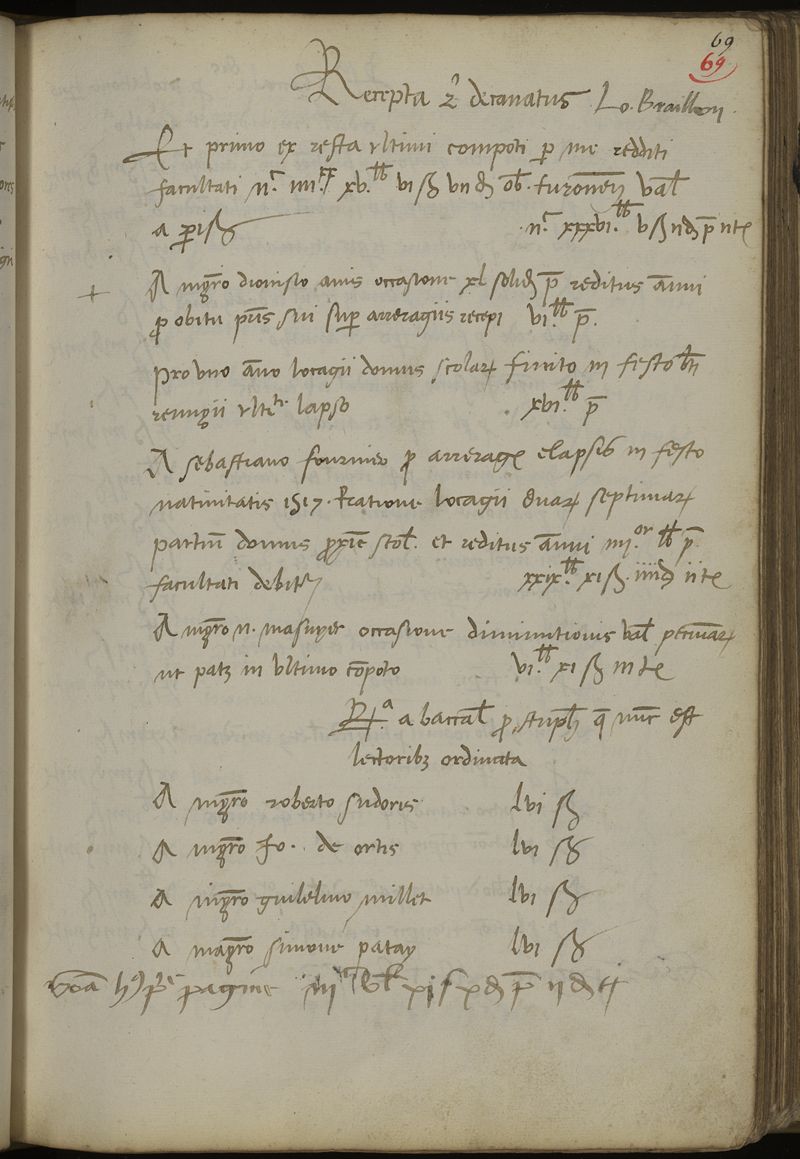 69
69
Recepta 2ͥ decanatus Lo. Braillon.
Et primo ex resta ultimi compoti per me redditi
facultati xv. vi ß un ob. turonen val
a pariß xxxvi. vß
+ A mgro dionisio avis occasione xl solid p reditus annui
pro obitu pris sui super arreragiis recepi vi. p.
Pro uno anno locagii domus scolar finito in festo bti
remigii ulti lapso xvi. p
A sebastiano fournier pro arrerag elapsis in festo
nativitatis 1517. Ratione locagii duar septimar
partium domus proxie scol. et reditus annui iiii.or p
facultati debit xxix. xi ß. iiii
A mgro n. masuyer occasione diminutionis val pecuniar
ut patz in ultimo compoto vi. xi ß
a baccal pro stuph q nunc est
lectoribz ordinata
A mgro roberto sudoris lvi ß
A mgro Jo. de ortis lvi ß
A mgro guilelmo millet lvi ß
A magro simone patay lvi ß
pagine